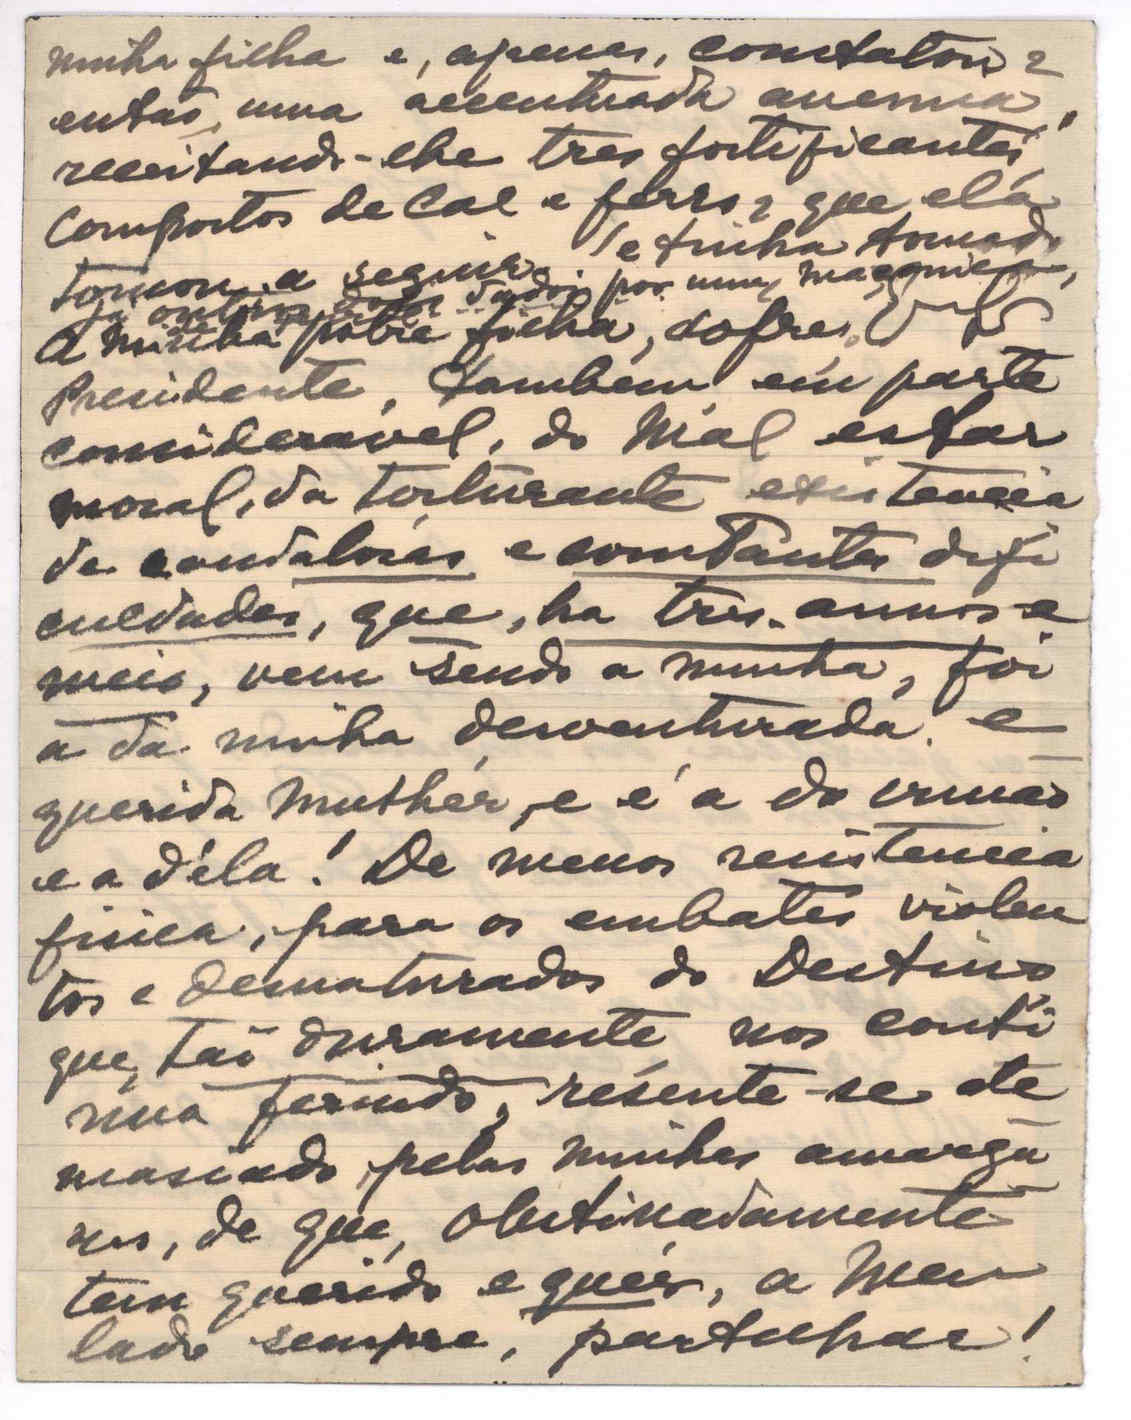 minha filha e, apenas, constatou,
entaõ, uma accentuada anemia,
receitando-lhe tres fortificantes
compostos de cal e ferro, que ela
tomou a seguir e tinha tomado
já outros dados por um magnifico,
A minha pobre filha, sofre,
Presidente, tambem em parte
consideravel, do Mál estar
moral, da torturante existencia
de andalorias e constantes difi
culdades, que, ha tres annos e
meio, vem sendo a minha, foi
a da minha desventurada e
querida Mulhér, e é a do irmaõ
e a d'éla! De menos resistencia
fisica, para os embates violen
tos e desnaturados do Destino
que, taõ duramente nos conti
nua ferindo, résente-se de
masiado, pelas minhas amargu
ras, de que, obstinadamente
tem querido e quér, a meu
lado sempre, partilhar!